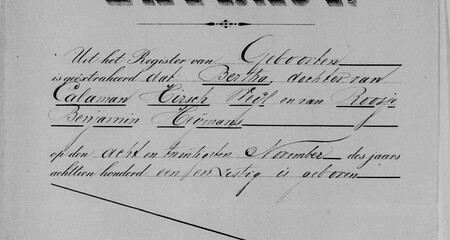 Uit het Register van Geboorten
is geëxtraheerd dat Bertha, dochter van
Calaman Hirsch Weijl en van Roosje
Benjamin Heijmans
op den acht en twintigsten November des jaars
achttien honderd een en zestig is geboren